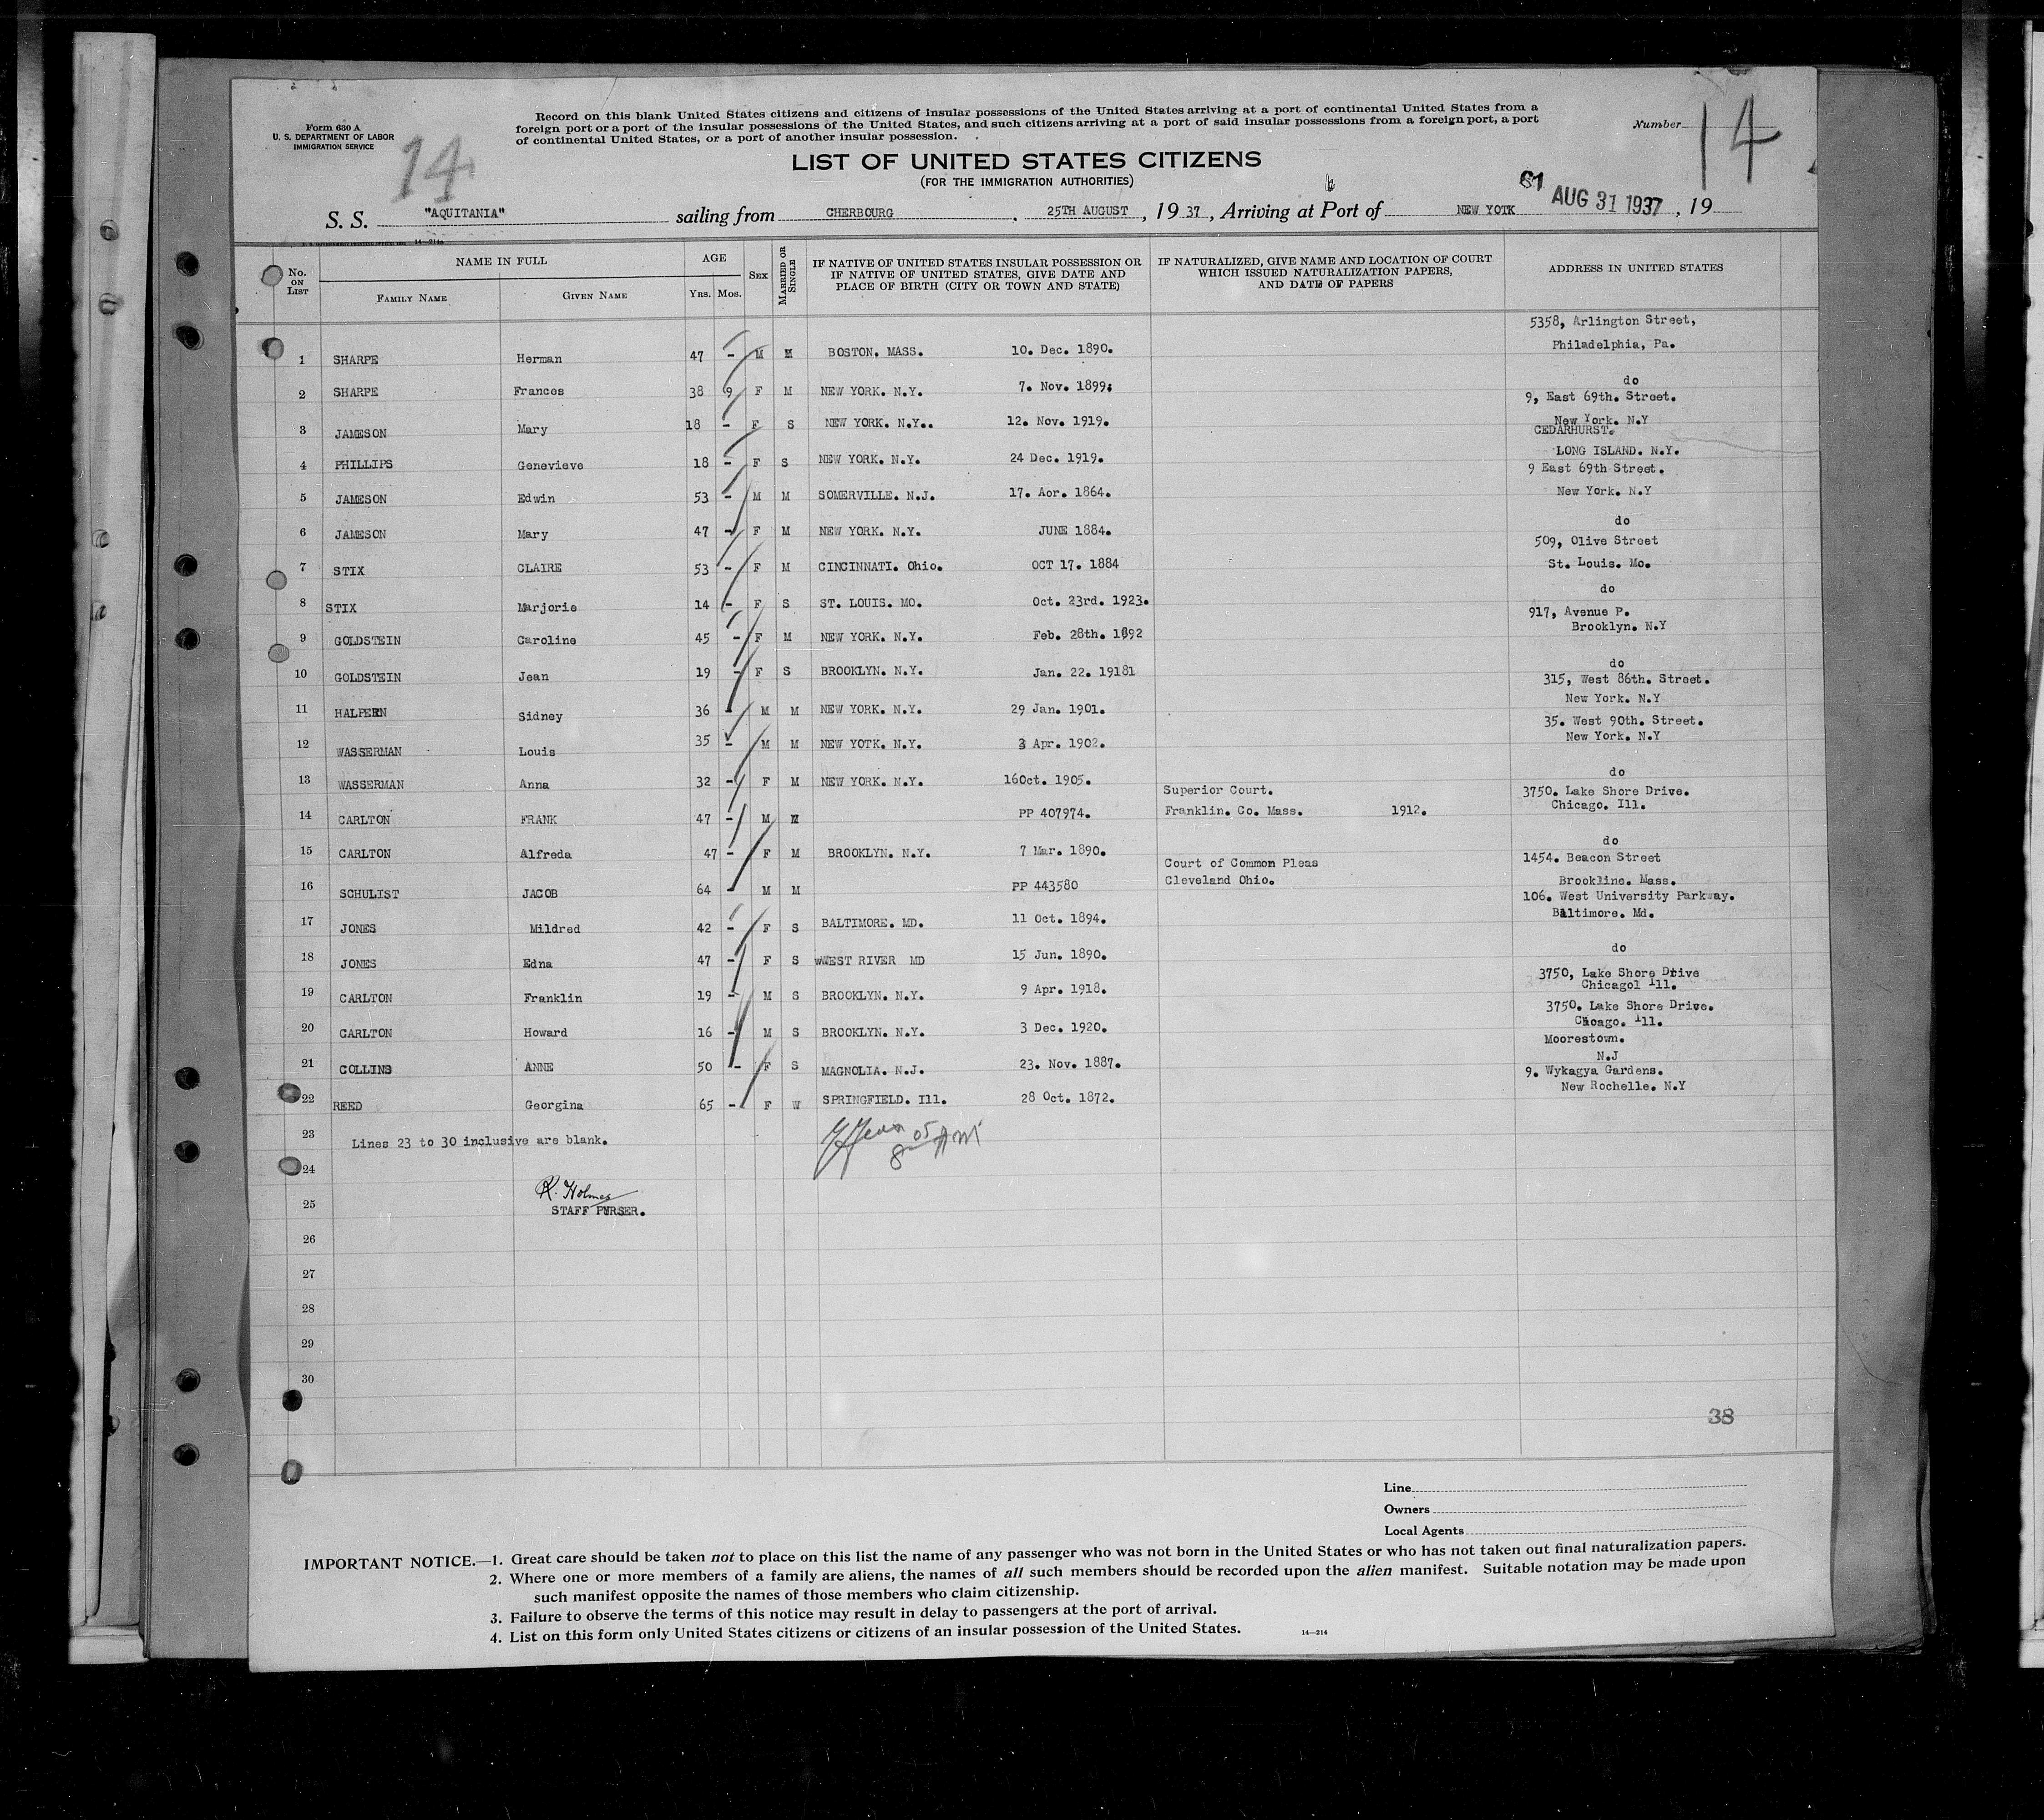 Form 630 A
U. S. DEPARTMENT OF LABOR
IMMIGRATION SERVICE
14
Record on this blank United States citizens and citizens of insular possessions of the United States arriving at a port of continental United States from a
foreign port or a port of the insular possessions of the United States, and such citizens arriving at a port of said insular possessions from a foreign port, a port
of continental United States, or a port of another insular possession.
Number 14
LIST OF UNITED STATES CITIZENS
(FOR THE IMMIGRATION AUTHORITIES)
S. S. "AQUITANIA" sailing from CHERBOURG, 25TH AUGUST, 1937, Arriving at Port of NEW YOTK AUG 31 1937, 19
14—214a
No. ON LIST
NAME IN FULL
FAMILY NAME
GIVEN NAME
AGE
YRS. MOS.
SEX
MARRIED OR SINGLE
IF NATIVE OF UNITED STATES INSULAR POSSESSION OR
IF NATIVE OF UNITED STATES, GIVE DATE AND
PLACE OF BIRTH (CITY OR TOWN AND STATE)
IF NATURALIZED, GIVE NAME AND LOCATION OF COURT
WHICH ISSUED NATURALIZATION PAPERS,
AND DATE OF PAPERS
ADDRESS IN UNITED STATES
5358, Arlington Street,
1 SHARPE Herman 47 - M M BOSTON. MASS. 10. Dec. 1890. Philadelphia, Pa.
2 SHARPE Frances 38 9 F M NEW YORK. N.Y. 7. Nov. 1899; do
9, East 69th. Street.
3 JAMESON Mary 18 - F S NEW YORK. N.Y.. 12. Nov. 1919. New York. N.Y
CEDARHURST.
4 PHILLIPS Genevieve 18 - F S NEW YORK. N.Y. 24 Dec. 1919. LONG ISLAND. N.Y.
9 East 69th Street.
5 JAMESON Edwin 53 - M M SOMERVILLE. N.J. 17. Aor. 1864. New York. N.Y
6 JAMESON Mary 47 - F M NEW YORK. N.Y. JUNE 1884. do
509, Olive Street
7 STIX CLAIRE 53 - F M CINCINNATI. Ohio. OCT 17. 1884 St. Louis. Mo.
8 STIX Marjorie 14 - F S ST. LOUIS. MO. Oct. 23rd. 1923. do
917, Avenue P.
9 GOLDSTEIN Caroline 45 - F M NEW YORK. N.Y. Feb. 28th. 1892 Brooklyn. N.Y
10 GOLDSTEIN Jean 19 - F S BROOKLYN. N.Y. Jan. 22. 19181 do
315, West 86th. Street.
11 HALPERN Sidney 36 - M M NEW YORK. N.Y. 29 Jan. 1901. New York. N.Y
35. West 90th. Street.
12 WASSERMAN Louis 35 - M M NEW YOTK. N.Y. 3 Apr. 1902. New York. N.Y
13 WASSERMAN Anna 32 - F M NEW YORK. N.Y. 16Oct. 1905. do
Superior Court. 3750. Lake Shore Drive.
14 CARLTON FRANK 47 - M M PP 407974. Franklin. Co. Mass. 1912. Chicago. Ill.
15 CARLTON Alfreda 47 - F M BROOKLYN. N.Y. 7 Mar. 1890. do
Court of Common Pleas 1454. Beacon Street
16 SCHULIST JACOB 64 - M M PP 443580 Cleveland Ohio. Brookline. Mass.
106. West University Parkway.
17 JONES Mildred 42 - F S BALTIMORE. MD. 11 Oct. 1894. Baltimore. Md.
18 JONES Edna 47 - F S wWEST RIVER MD 15 Jun. 1890. do
3750, Lake Shore Drive
19 CARLTON Franklin 19 - M S BROOKLYN. N.Y. 9 Apr. 1918. Chicagol Ill.
3750. Lake Shore Drive.
20 CARLTON Howard 16 - M S BROOKLYN. N.Y. 3 Dec. 1920. Chcago. Ill.
Moorestown.
21 COLLINS ANNE 50 - F S MAGNOLIA. N.J. 23. Nov. 1887. N.J
9. Wykagya Gardens.
22 REED Georgina 65 - F W SPRINGFIELD. Ill. 28 Oct. 1872. New Rochelle. N.Y
23 Lines 23 to 30 inclusive are blank.
24
R. Holmes
25 STAFF PURSER.
26
27
28
29
30
38
Line
Owners
Local Agents
IMPORTANT NOTICE.—1. Great care should be taken not to place on this list the name of any passenger who was not born in the United States or who has not taken out final naturalization papers.
2. Where one or more members of a family are aliens, the names of all such members should be recorded upon the alien manifest. Suitable notation may be made upon
such manifest opposite the names of those members who claim citizenship.
3. Failure to observe the terms of this notice may result in delay to passengers at the port of arrival.
4. List on this form only United States citizens or citizens of an insular possession of the United States.
14—214